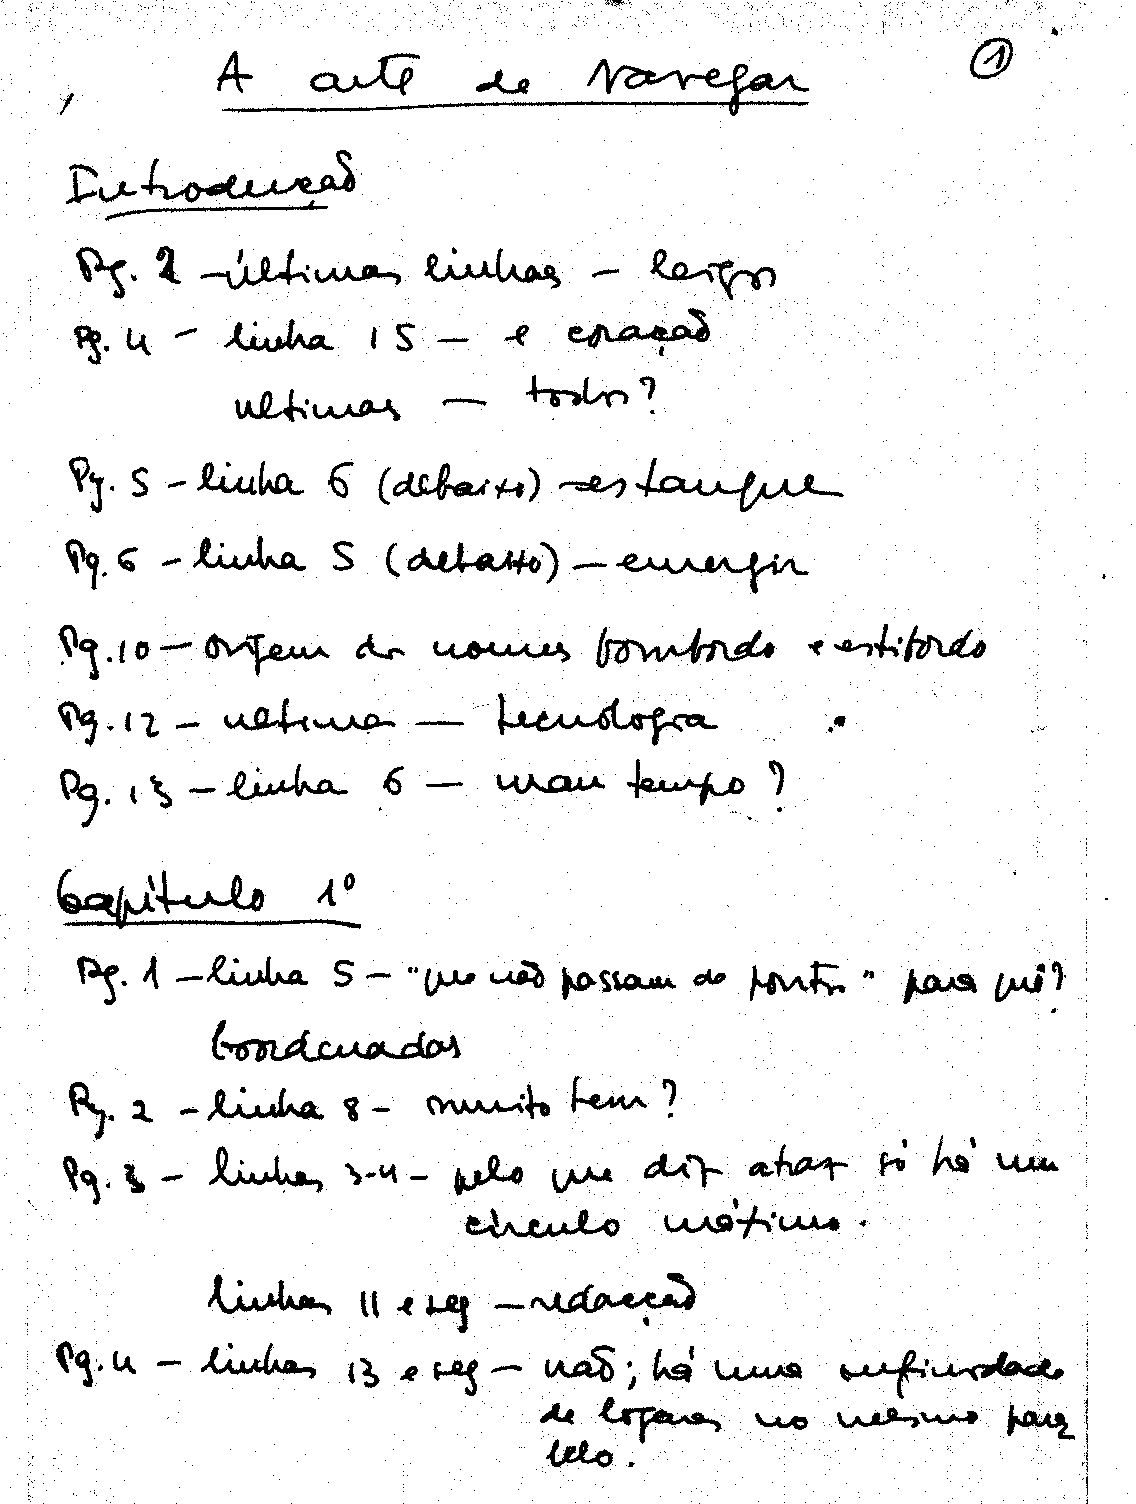 1
A arte de Navegar
Introdução
Pg. 2 - últimas linhas - leigos
Pg. 4 - linha 15 - e coração
ultimas - todos?
Pg. 5 - linha 6 (debaixo) - estanque
Pg. 6 - linha 5 (debaixo) - emergir
Pg. 10 - origem dos nomes bombordo e estibordo
Pg. 12 - ultima - tecnologia
Pg. 13 - linha 6 - mau tempo?
Capítulo 1º
Pg. 1 - linha 5 - "que não passam de pontos" para quê?
Coordenadas
Pg. 2 - linha 8 - muito tem?
Pg. 3 - linhas 3-4 - pelo que diz atraz só há um
círculo máximo.
linhas 11 e seg - redacção
Pg. 4 - linhas 13 e seg - não; há uma infinidade
de logares no mesmo para
lelo.